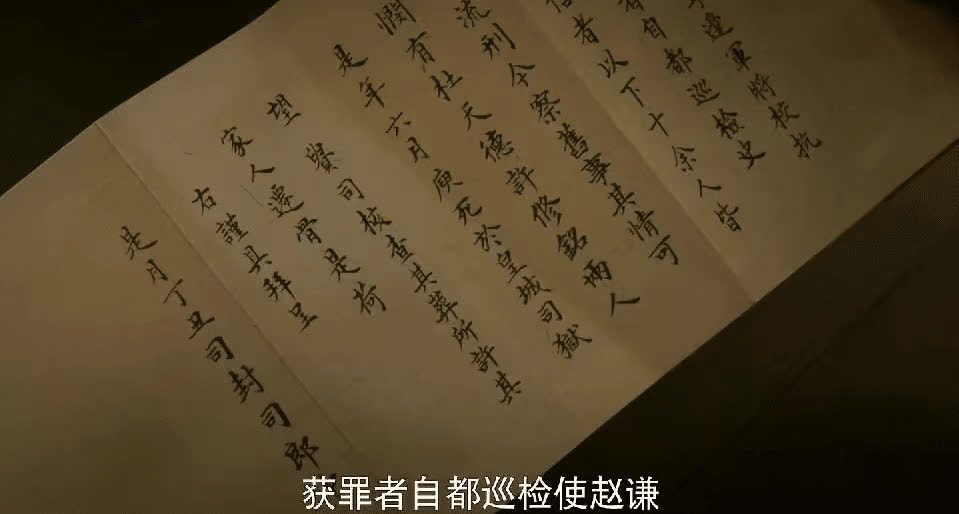 邊軍將校抗
自都巡檢史
者以下十余人皆
流刑今察舊事其情可
憫有杜天德許修銘兩人
是年六月庾死於皇城司獄
望貴司核查其葬所許其
家人遷骨是荷
右謹具拜呈
是月丁丑司封司郎
获罪者自都巡检使赵谦